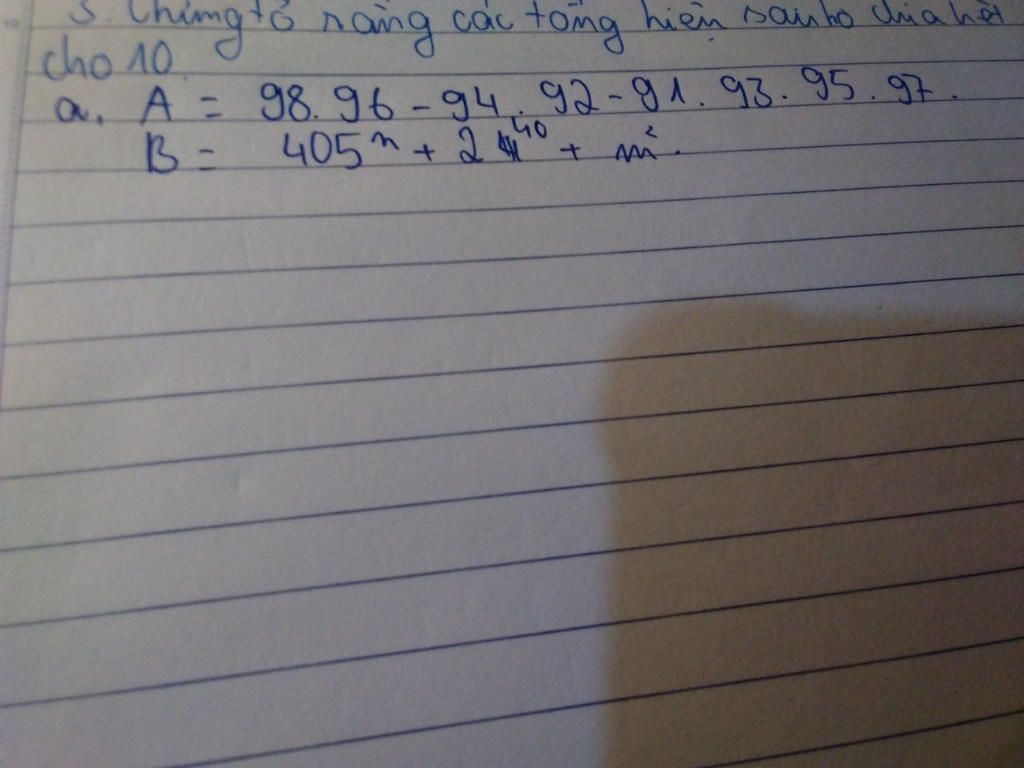 3. Chứng tỏ rằng các tổng hiện sau ho chia hết
cho 10.
a. A = 98.96 - 94.92 - 91.93.95.97.
B = 405ⁿ + 2⁴⁰ + m².